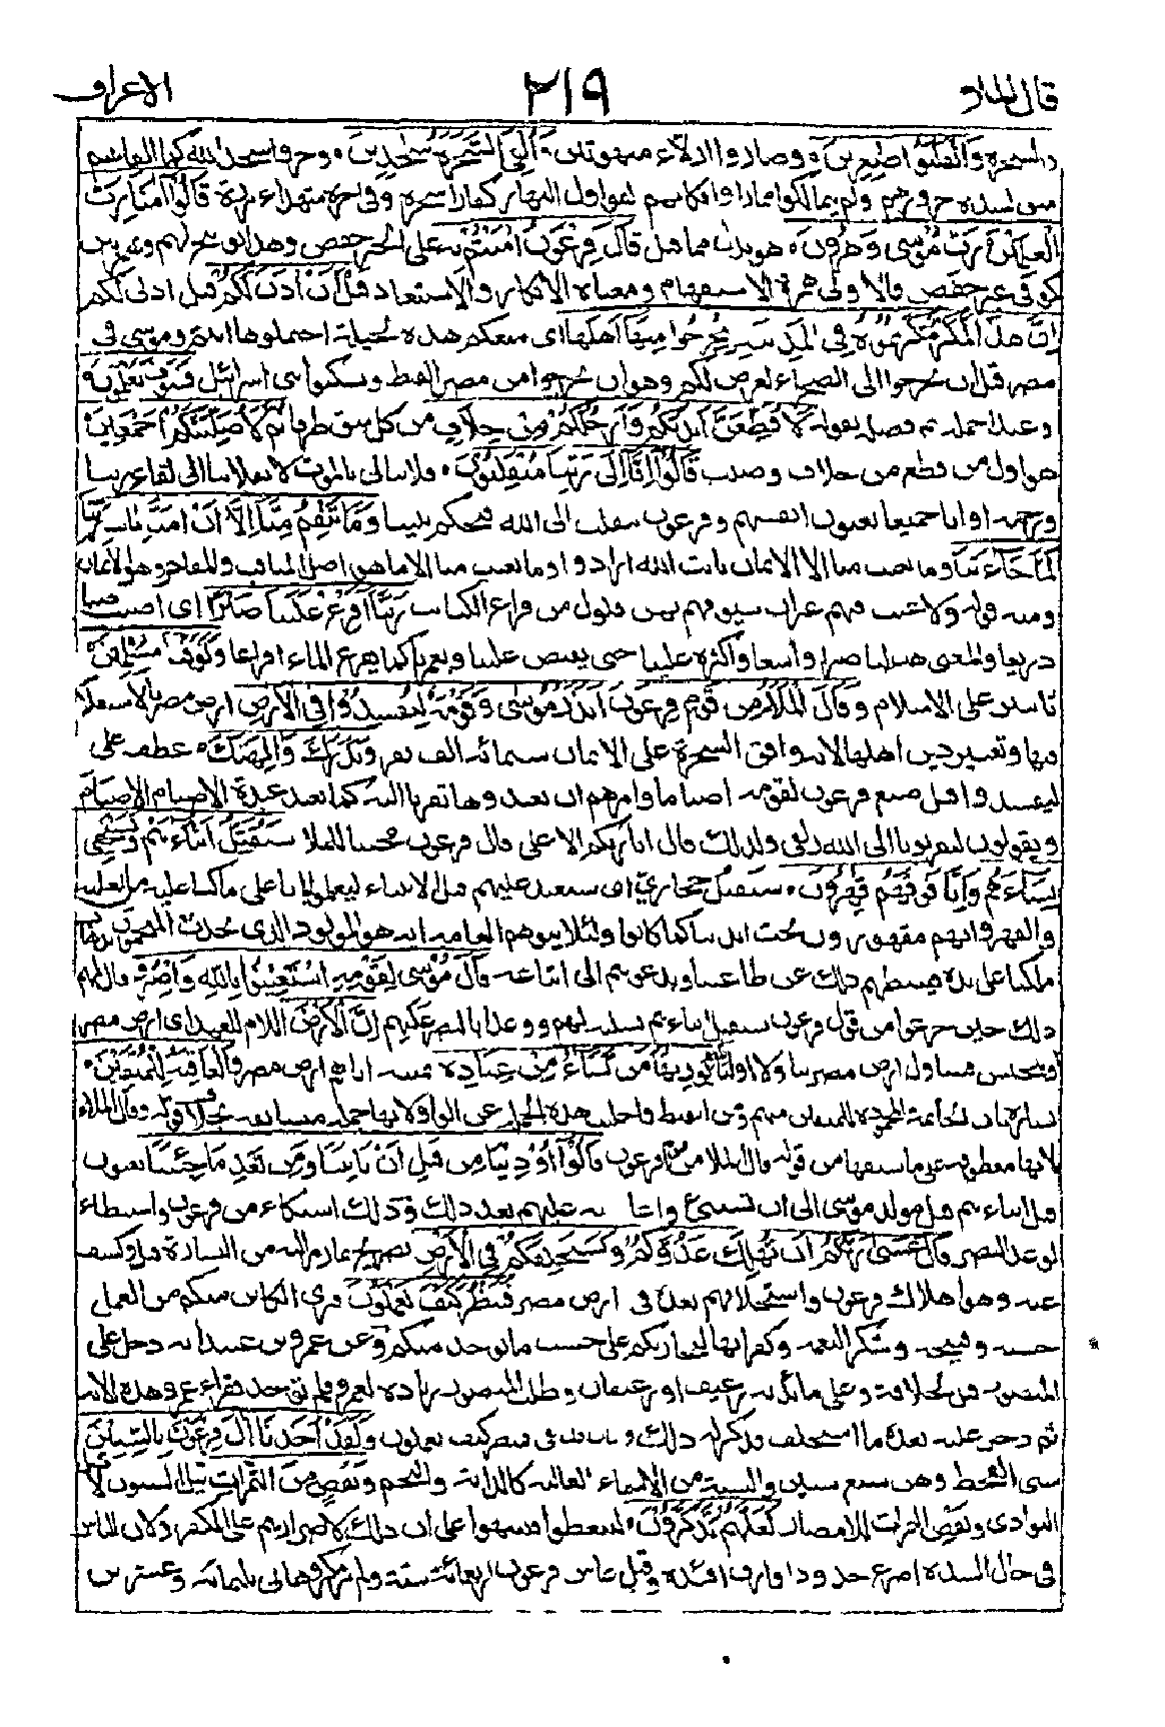 قال الملاء ٢١٩ الاعراف
والسحرة وَانْقَلَبُوْا صٰغِرِيْنَ وصاروا اذلاء مبهوتين وَاُلْقِيَ السَّحَرَةُ سٰجِدِيْنَ وخروا سجدا لله كانما القاهم
ملق لشدة خرورهم ولم يتمالكوا مما راوا فكانهم القوا اول النهار كفارا سحرة وفى اخره شهداء بررة قَالُوْٓا اٰمَنَّا بِرَبِّ
الْعٰلَمِيْنَ رَبِّ مُوْسٰى وَهٰرُوْنَ هو بدل مما قبل قَالَ فِرْعَوْنُ اٰمَنْتُمْ بِهٖ على الخبر حفص وهذا توبيخ لهم وبهمزتين
كوفى غير حفص فالاولى همزة الاستفهام ومعناه الانكار والاستبعاد قَبْلَ اَنْ اٰذَنَ لَكُمْ قبل اذنى لكم
اِنَّ هٰذَا لَمَكْرٌ مَّكَرْتُمُوْهُ فِى الْمَدِيْنَةِ لِتُخْرِجُوْا مِنْهَآ اَهْلَهَا ان صنعكم هذا لحيلة احتلتموها انتم وموسى فى
مصر قبل ان تخرجوا الى الصحراء لغرض لكم وهو ان تخرجوا من مصر القبط وتسكنوا بنى اسرائيل فَسَوْفَ تَعْلَمُوْنَ
وعيد اجمله ثم فصله بقوله لَاُقَطِّعَنَّ اَيْدِيَكُمْ وَاَرْجُلَكُمْ مِّنْ خِلَافٍ من كل شق طرفا ثُمَّ لَاُصَلِّبَنَّكُمْ اَجْمَعِيْنَ
هو اول من قطع من خلاف وصلب قَالُوْٓا اِنَّآ اِلٰى رَبِّنَا مُنْقَلِبُوْنَ فلا نبالى بالموت لانقلابنا الى لقاء ربنا
ورحمته او انا جميعا يعنون انفسهم وفرعون ننقلب الى الله فيحكم بيننا وَمَا تَنْقِمُ مِنَّآ اِلَّآ اَنْ اٰمَنَّا بِاٰيٰتِ رَبِّنَا
لَمَّا جَآءَتْنَا وما تعيب منا الا الايمان بايات الله ارادوا وما تعيب منا الا ما هو اصل المناقب والمفاخر وهو الايمان
ومنه قوله ولا عيب فيهم غير ان سيوفهم بهن فلول من قراع الكتائب رَبَّنَآ اَفْرِغْ عَلَيْنَا صَبْرًا اى اصبب صبا
ذريعا والمعنى هب لنا صبرا واسعا واكثره علينا حتى يفيض علينا ويغمرنا كما يفرغ الماء افراغا وَّتَوَفَّنَا مُسْلِمِيْنَ
ثابتين على الاسلام وَقَالَ الْمَلَاُ مِنْ قَوْمِ فِرْعَوْنَ اَتَذَرُ مُوْسٰى وَقَوْمَهٗ لِيُفْسِدُوْا فِى الْاَرْضِ ارض مصر بالاستعلاء
فيها وتغيير دين اهلها لانه وافق السحرة على الايمان ستمائة الف نفر وَيَذَرَكَ وَاٰلِهَتَكَ عطف على
ليفسدوا قيل صنع فرعون لقومه اصناما وامرهم ان يعبدوها تقربا اليه كما يعبد عبدة الاصنام الاصنام
ويقولون ليقربونا الى الله زلفى ولذلك قال انا ربكم الاعلى قال فرعون مجيبا للملا سَنُقَتِّلُ اَبْنَآءَهُمْ وَنَسْتَحْيٖ
نِسَآءَهُمْ وَاِنَّا فَوْقَهُمْ قٰهِرُوْنَ سنقتل حجازى اى سنعيد عليهم قتل الابناء ليعلموا انا على ما كنا عليه من الغلبة
والقهر وانهم مقهورون تحت ايدينا كما كانوا ولئلا يتوهم العامة انه هو المولود الذى تحدث المنجمون بذهاب
ملكنا على يده فيثبطهم ذلك عن طاعتنا ويدعوهم الى اتباعه قَالَ مُوْسٰى لِقَوْمِهِ اسْتَعِيْنُوْا بِاللّٰهِ وَاصْبِرُوْا قال لهم
ذلك حين جزعوا من قول فرعون سنقتل ابناءهم تسلية لهم ووعدا بالنصر عليهم اِنَّ الْاَرْضَ اللام للعهد اى ارض مصر
او للجنس فيتناول ارض مصر تناولا اوليا لِلّٰهِ يُوْرِثُهَا مَنْ يَّشَآءُ مِنْ عِبَادِهٖ فيه تمنيته اياهم ارض مصر وَالْعَاقِبَةُ لِلْمُتَّقِيْنَ
بشارة بان الخاتمة المحمودة للمتقين منهم ومن القبط واخليت هذه الجملة عن الواو لانها جملة مستانفة بخلاف قوله وقال الملاء
لانها معطوفة على ما سبقها من قوله قال الملا من قوم فرعون قَالُوْٓا اُوْذِيْنَا مِنْ قَبْلِ اَنْ تَاْتِيَنَا وَمِنْ بَعْدِ مَا جِئْتَنَا يعنون
قتل ابناءهم قبل مولد موسى الى ان استنبئ واعادته عليهم بعد ذلك وذلك اشتكاء من فرعون واستبطاء
لوعد النصر قَالَ عَسٰى رَبُّكُمْ اَنْ يُّهْلِكَ عَدُوَّكُمْ وَيَسْتَخْلِفَكُمْ فِى الْاَرْضِ تصريح بما رمز اليه من البشارة قبل وكشف
عنه وهو اهلاك فرعون واستخلافهم بعده فى ارض مصر فَيَنْظُرَ كَيْفَ تَعْمَلُوْنَ فيرى الكائن منكم من العمل
حسنه وقبيحه وشكر النعمة وكفرانها ليجازيكم على حسب ما يوجد منكم وعن عمرو بن عبيد انه دخل على
المنصور قبل الخلافة وعلى مائدته رغيف او رغيفان وطلب المنصور زيادة لعمرو فلم توجد فقرا عمرو هذه الاية
ثم دخل عليه بعد ما استخلف فذكر له ذلك وقال قد بقى فينظر كيف تعملون وَلَقَدْ اَخَذْنَآ اٰلَ فِرْعَوْنَ بِالسِّنِيْنَ
سنى القحط وهن سبع سنين والسنة من الاسماء الغالبة كالدابة والنجم وَنَقْصٍ مِّنَ الثَّمَرٰتِ قيل السنون لاهل
البوادى ونقص الثمرات للامصار لَعَلَّهُمْ يَذَّكَّرُوْنَ ليتعظوا فينتبهوا على ان ذلك لاصرارهم على الكفر ولان الناس
فى حال الشدة اضرع خدودا وارق افئدة وقيل عاش فرعون اربعمائة سنة ولم ير مكروها فى ثلثمائة وعشرين